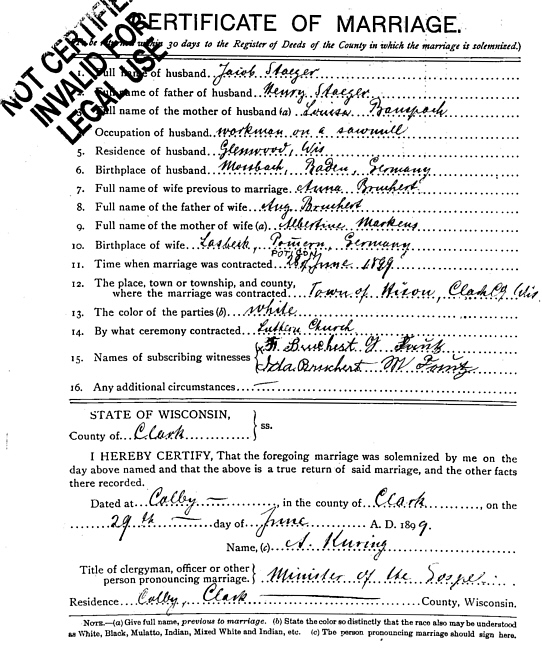 NOT CERTIFIED
INVALID FOR
LEGAL USE
CERTIFICATE OF MARRIAGE.
(To be returned within 30 days to the Register of Deeds of the County in which the marriage is solemnized.)
1. Full name of husband. Jacob Staeger
2. Full name of father of husband. Henry Staeger
3. Full name of the mother of husband (a) Louisa Banspach
Occupation of husband. workman on a sawmill
5. Residence of husband. Glenwood, Wis
6. Birthplace of husband. Mosbach, Baden, Germany
7. Full name of wife previous to marriage. Anna Bruchert
8. Full name of the father of wife. Aug. Bruchert
9. Full name of the mother of wife (a). Albertine Markens
10. Birthplace of wife. Lasbeck, Pomern, Germany
11. Time when marriage was contracted. June 1899
12. The place, town or township, and county, where the marriage was contracted. Town of Hixon, Clark Co Wis
13. The color of the parties (b). white
14. By what ceremony contracted. Luthern Church
15. Names of subscribing witnesses Bruchert
Ida Bruchert M
16. Any additional circumstances. —
STATE OF WISCONSIN,
County of. Clark } ss.
I HEREBY CERTIFY, That the foregoing marriage was solemnized by me on the
day above named and that the above is a true return of said marriage, and the other facts
there recorded.
Dated at Colby —, in the county of Clark, on the
29th — day of June A. D. 1899.
Name, (c) A. Kuring
Title of clergyman, officer or other person pronouncing marriage. } Minister of the Gospel
Residence Colby, Clark — County, Wisconsin.
NOTE.—(a) Give full name, previous to marriage. (b) State the color so distinctly that the race also may be understood
as White, Black, Mulatto, Indian, Mixed White and Indian, etc. (c) The person pronouncing marriage should sign here.